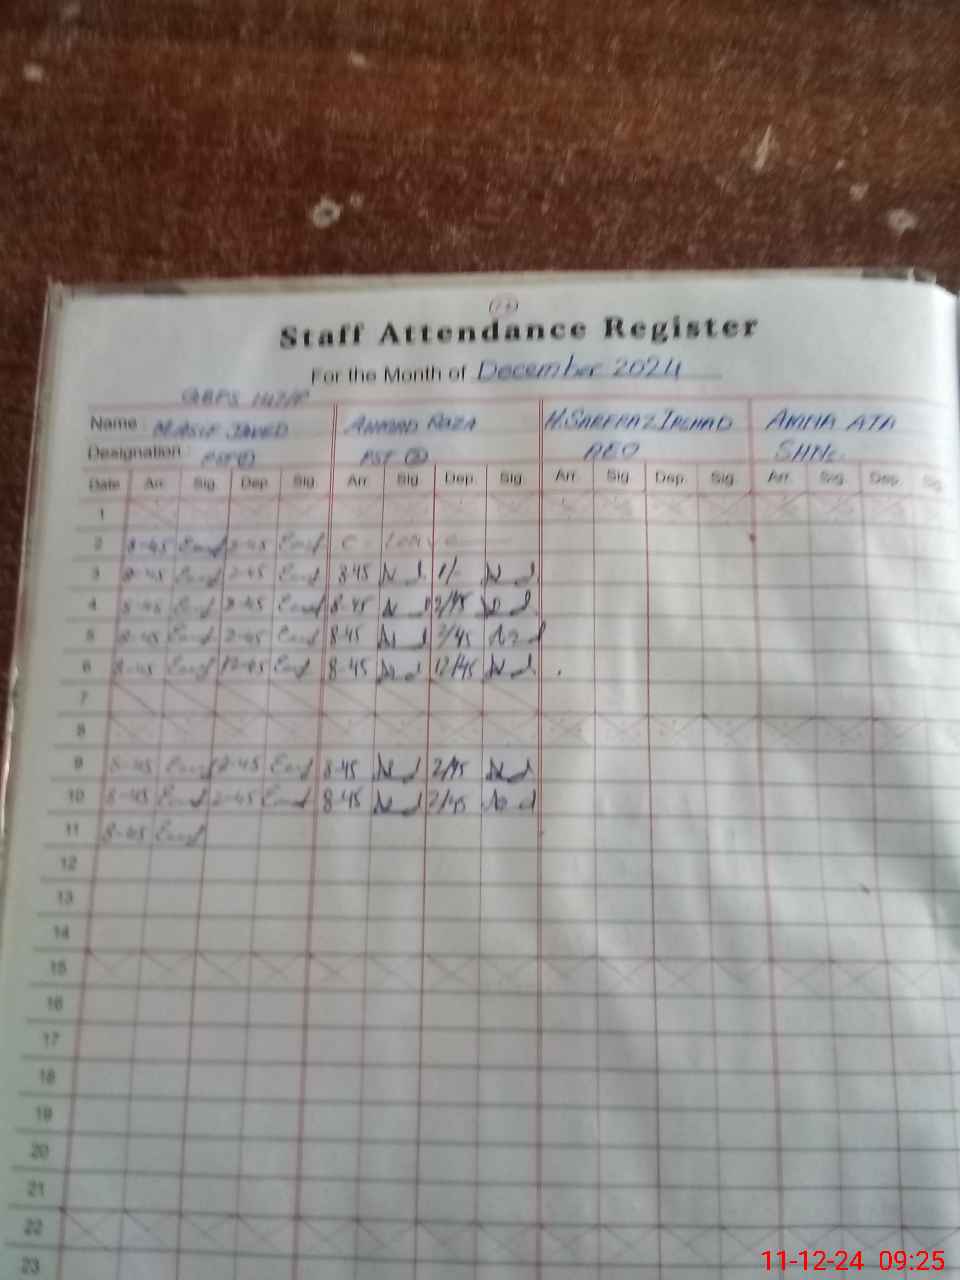 Staff Attendance Register
For the Month of December 2024
GBPS 147/P
Name : M.ASIF JAVED AHMAD RAZA M.SARFRAZ IRSHAD AMMA ATA
Designation : PST PST (2) AEO
Date Arr. Sig. Dep. Sig. Arr. Sig. Dep. Sig. Arr. Sig. Dep. Sig. Arr. Sig. Dep. Sig.
1
2 8-45 2-45 C-Leave
3 8-45 2-45 8-45 1/-
4 8-45 2-45 8-45 2/45
5 8-45 2-45 8-45 2/45
6 8-45 12-45 8-45 12/45
7
8
9 8-45 2-45 8-45 2/45
10 8-45 2-45 8-45 2/45
11 8-45
12
13
14
15
16
17
18
19
20
21
22
23
11-12-24 09:25